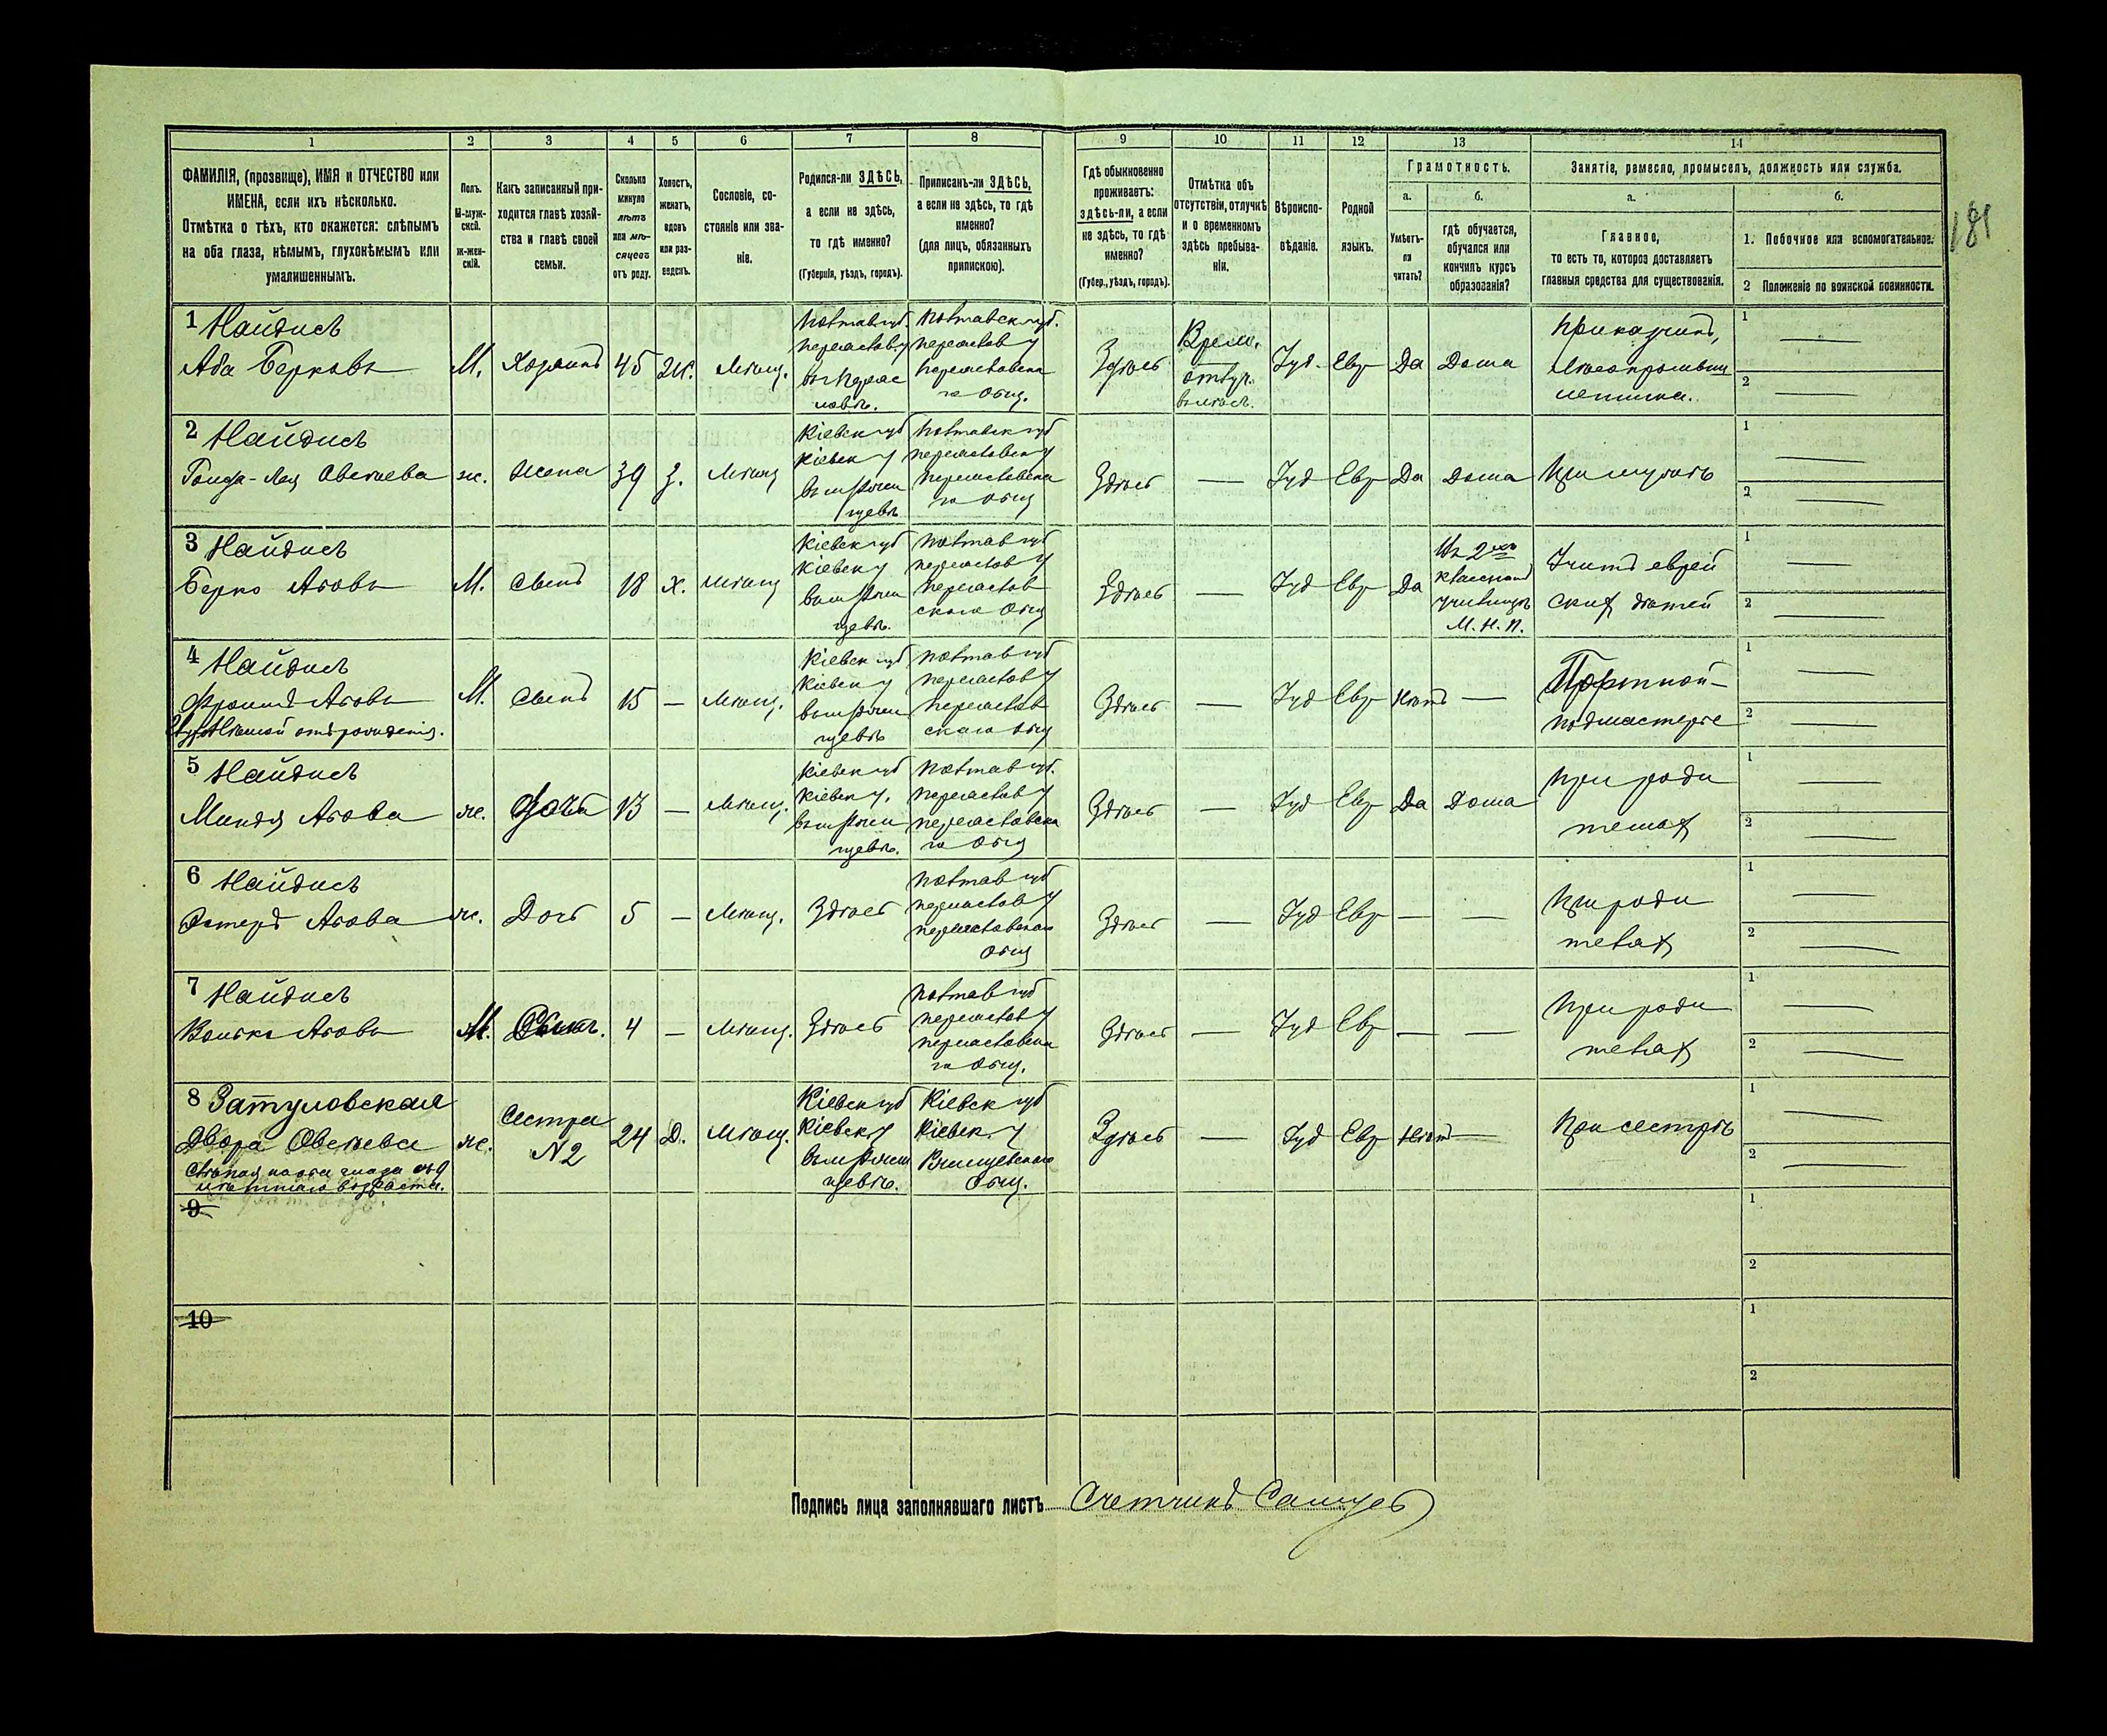 181
1
2
3
4
5
6
7
8
9
10
11
12
13
14
ФАМИЛІЯ, (прозвище), ИМЯ и ОТЧЕСТВО или
ИМЕНА, если ихъ нѣсколько.
Отмѣтка о тѣхъ, кто окажется: слѣпымъ
на оба глаза, нѣмымъ, глухонѣмымъ или
умалишеннымъ.
Полъ.
М-муж-
ской.
Ж-жен-
скій.
Какъ записанный при-
ходится главѣ хозяй-
ства и главѣ своей
семьи.
Сколько
минуло
лѣтъ
или мѣ-
сяцевъ
отъ роду.
Холостъ,
женатъ,
вдовъ
или раз-
веденъ.
Сословіе, со-
стояніе или зва-
ніе.
Родился-ли ЗДѢСЬ,
а если не здѣсь,
то гдѣ именно?
(Губернія, уѣздъ, городъ).
Приписанъ-ли ЗДѢСЬ,
а если не здѣсь, то гдѣ
именно?
(для лицъ, обязанныхъ
припискою).
Гдѣ обыкновенно
проживаетъ:
здѣсь-ли, а если
не здѣсь, то гдѣ
именно?
(Губер., уѣздъ, городъ).
Отмѣтка объ
отсутствіи, отлучкѣ
и о временномъ
здѣсь пребыва-
ніи.
Вѣроиспо-
вѣданіе.
Родной
языкъ.
Грамотность.
а.
Умѣетъ-
ли
читать?
б.
гдѣ обучается,
обучался или
кончилъ курсъ
образованія?
Занятіе, ремесло, промыселъ, должность или служба.
а.
Главное,
то есть то, которое доставляетъ
главныя средства для существованія.
б.
1. Побочное или вспомогательное.
2 Положеніе по воинской повинности.
1 Найдисъ
Аба Берковъ
М.
Хозяинъ
45
Ж.
Мѣщ.
Полтав губ.
переяслов у
въ Переяс
ловѣ.
Полтавск губ.
переяслов у
переясловска
го общ.
Здѣсь
Врем.
отлуч.
Іуд.
Евр
Да
Дома
Прикащикъ,
лѣсопромышл
1
2
2 Найдисъ
Овсѣева
ж.
Жена
39
З.
Мѣщ
Кіевск губ
Кіевск у
Полтавск губ
переясловск у
переясловска
го общ
Здѣсь
—
Іуд
Евр
Да
Дома
При мужѣ
1
2
3 Найдисъ
Берко Абовъ
М.
Сынъ
18
х.
Мѣщ
Кіевск губ
Кіевск у
Полтав губ
переяслов у
переяслов
скаго общ
Здѣсь
—
Іуд
Евр
Да
въ 2хъ
класномъ
училищѣ
М. Н. П.
Учитъ еврей
ских дѣтей
1
2
4 Найдисъ
Абовъ
отъ рожденія.
М.
Сынъ
15
—
Мѣщ.
Кіевск губ
Кіевск у
Полтав губ
переяслов у
переяслов
скаго общ
Здѣсь
—
Іуд
Евр
Нѣтъ
—
Портной-
подмастерье
1
2
5 Найдисъ
Миндя Абова
ж.
Дочь
13
—
Мѣщ.
Кіевск губ
Кіевск у.
Полтав губ.
переяслов у
переясловска
го общ
Здѣсь
—
Іуд
Евр
Да
Дома
При роди
телях
1
2
6 Найдисъ
Эстеръ Абова
ж.
Дочь
5
—
Мѣщ.
Здѣсь
Полтав губ
переяслов у
переясловскаго
общ
Здѣсь
—
Іуд
Евр
—
—
При роди
телях
1
2
7 Найдисъ
Абовъ
М.
Сынъ.
4
—
Мѣщ.
Здѣсь
Полтав губ
переяслов у
переясловска
го общ.
Здѣсь
—
Іуд
Евр
—
—
При роди
телях
1
2
8 Затуловская
Двора Овсѣева
Слѣпая на оба глаза съ 9
лѣтняго возраста.
ж.
Сестра
N 2
24
Д.
Мѣщ.
Кіевск губ
Кіевск у
Кіевск губ
Кіевск. у
общ.
Здѣсь
—
Іуд
Евр
Нѣт
—
При сестрѣ
1
2
9
1
2
10
1
2
Подпись лица заполнявшаго листъ
Счетчикъ